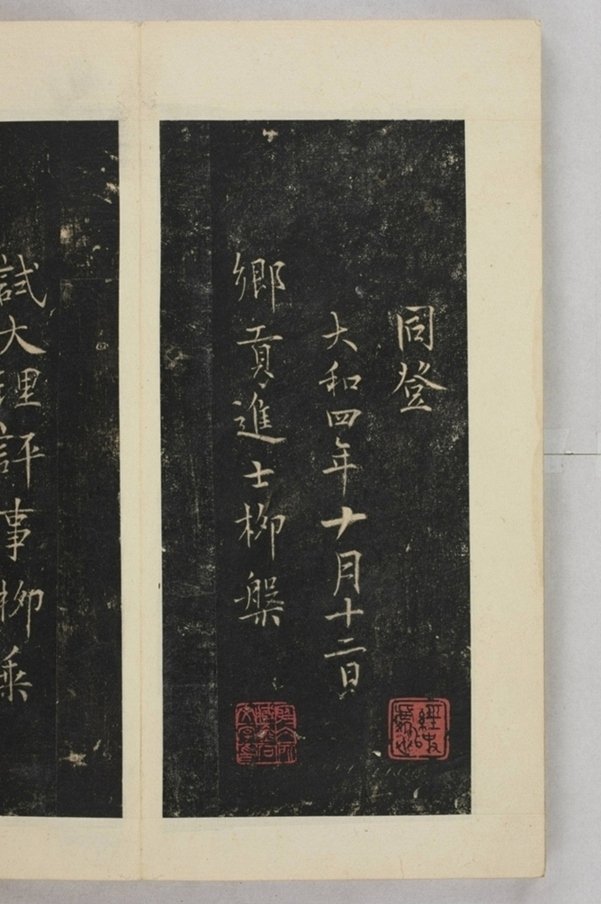 同登
大和四年十月十二日
鄉貢進士柳槃
試大理評事柳乘